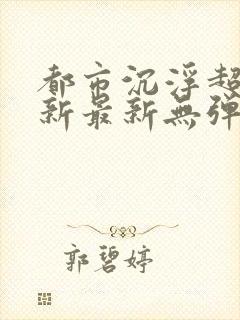 都市沉浮超
新最新無彈
郭碧婷